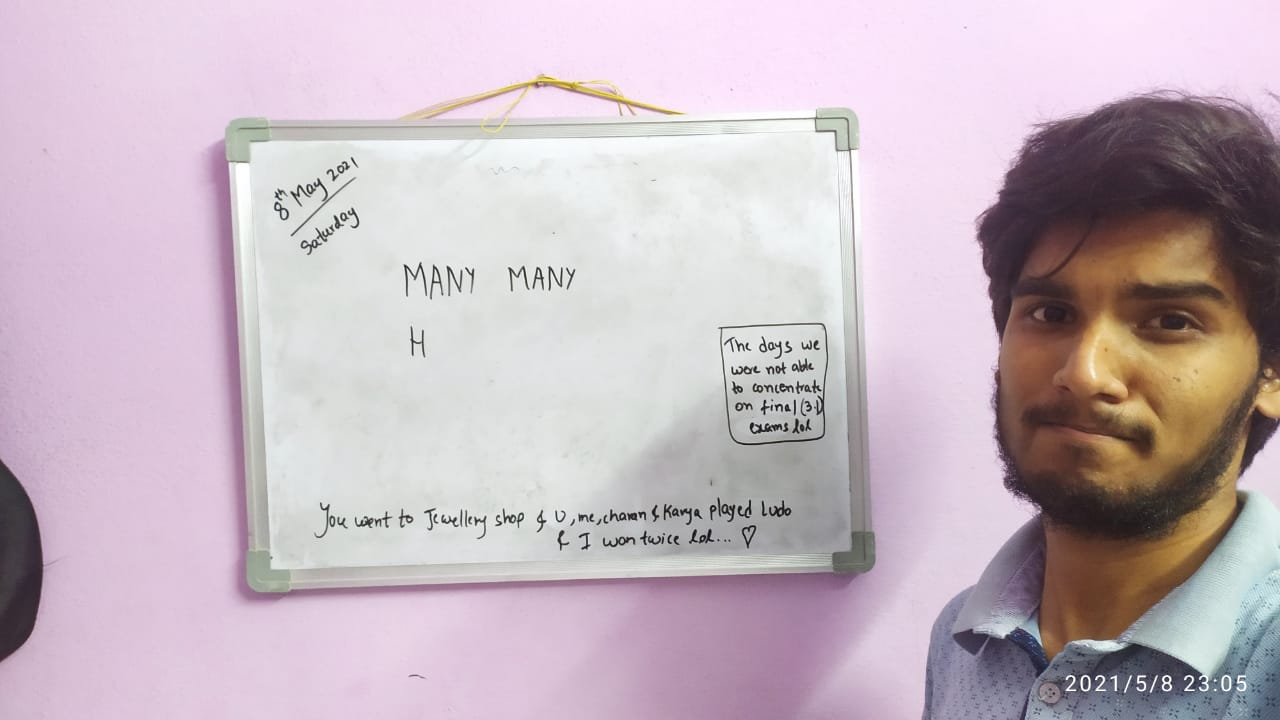 8th May 2021
Saturday
MANY MANY
H
The days we
were not able
to concentrate
on final (3.1)
exams lol
You went to Jewellery shop & U, me, charan & Kavya played Ludo
& I won twice lol... ♡
2021/5/8 23:05